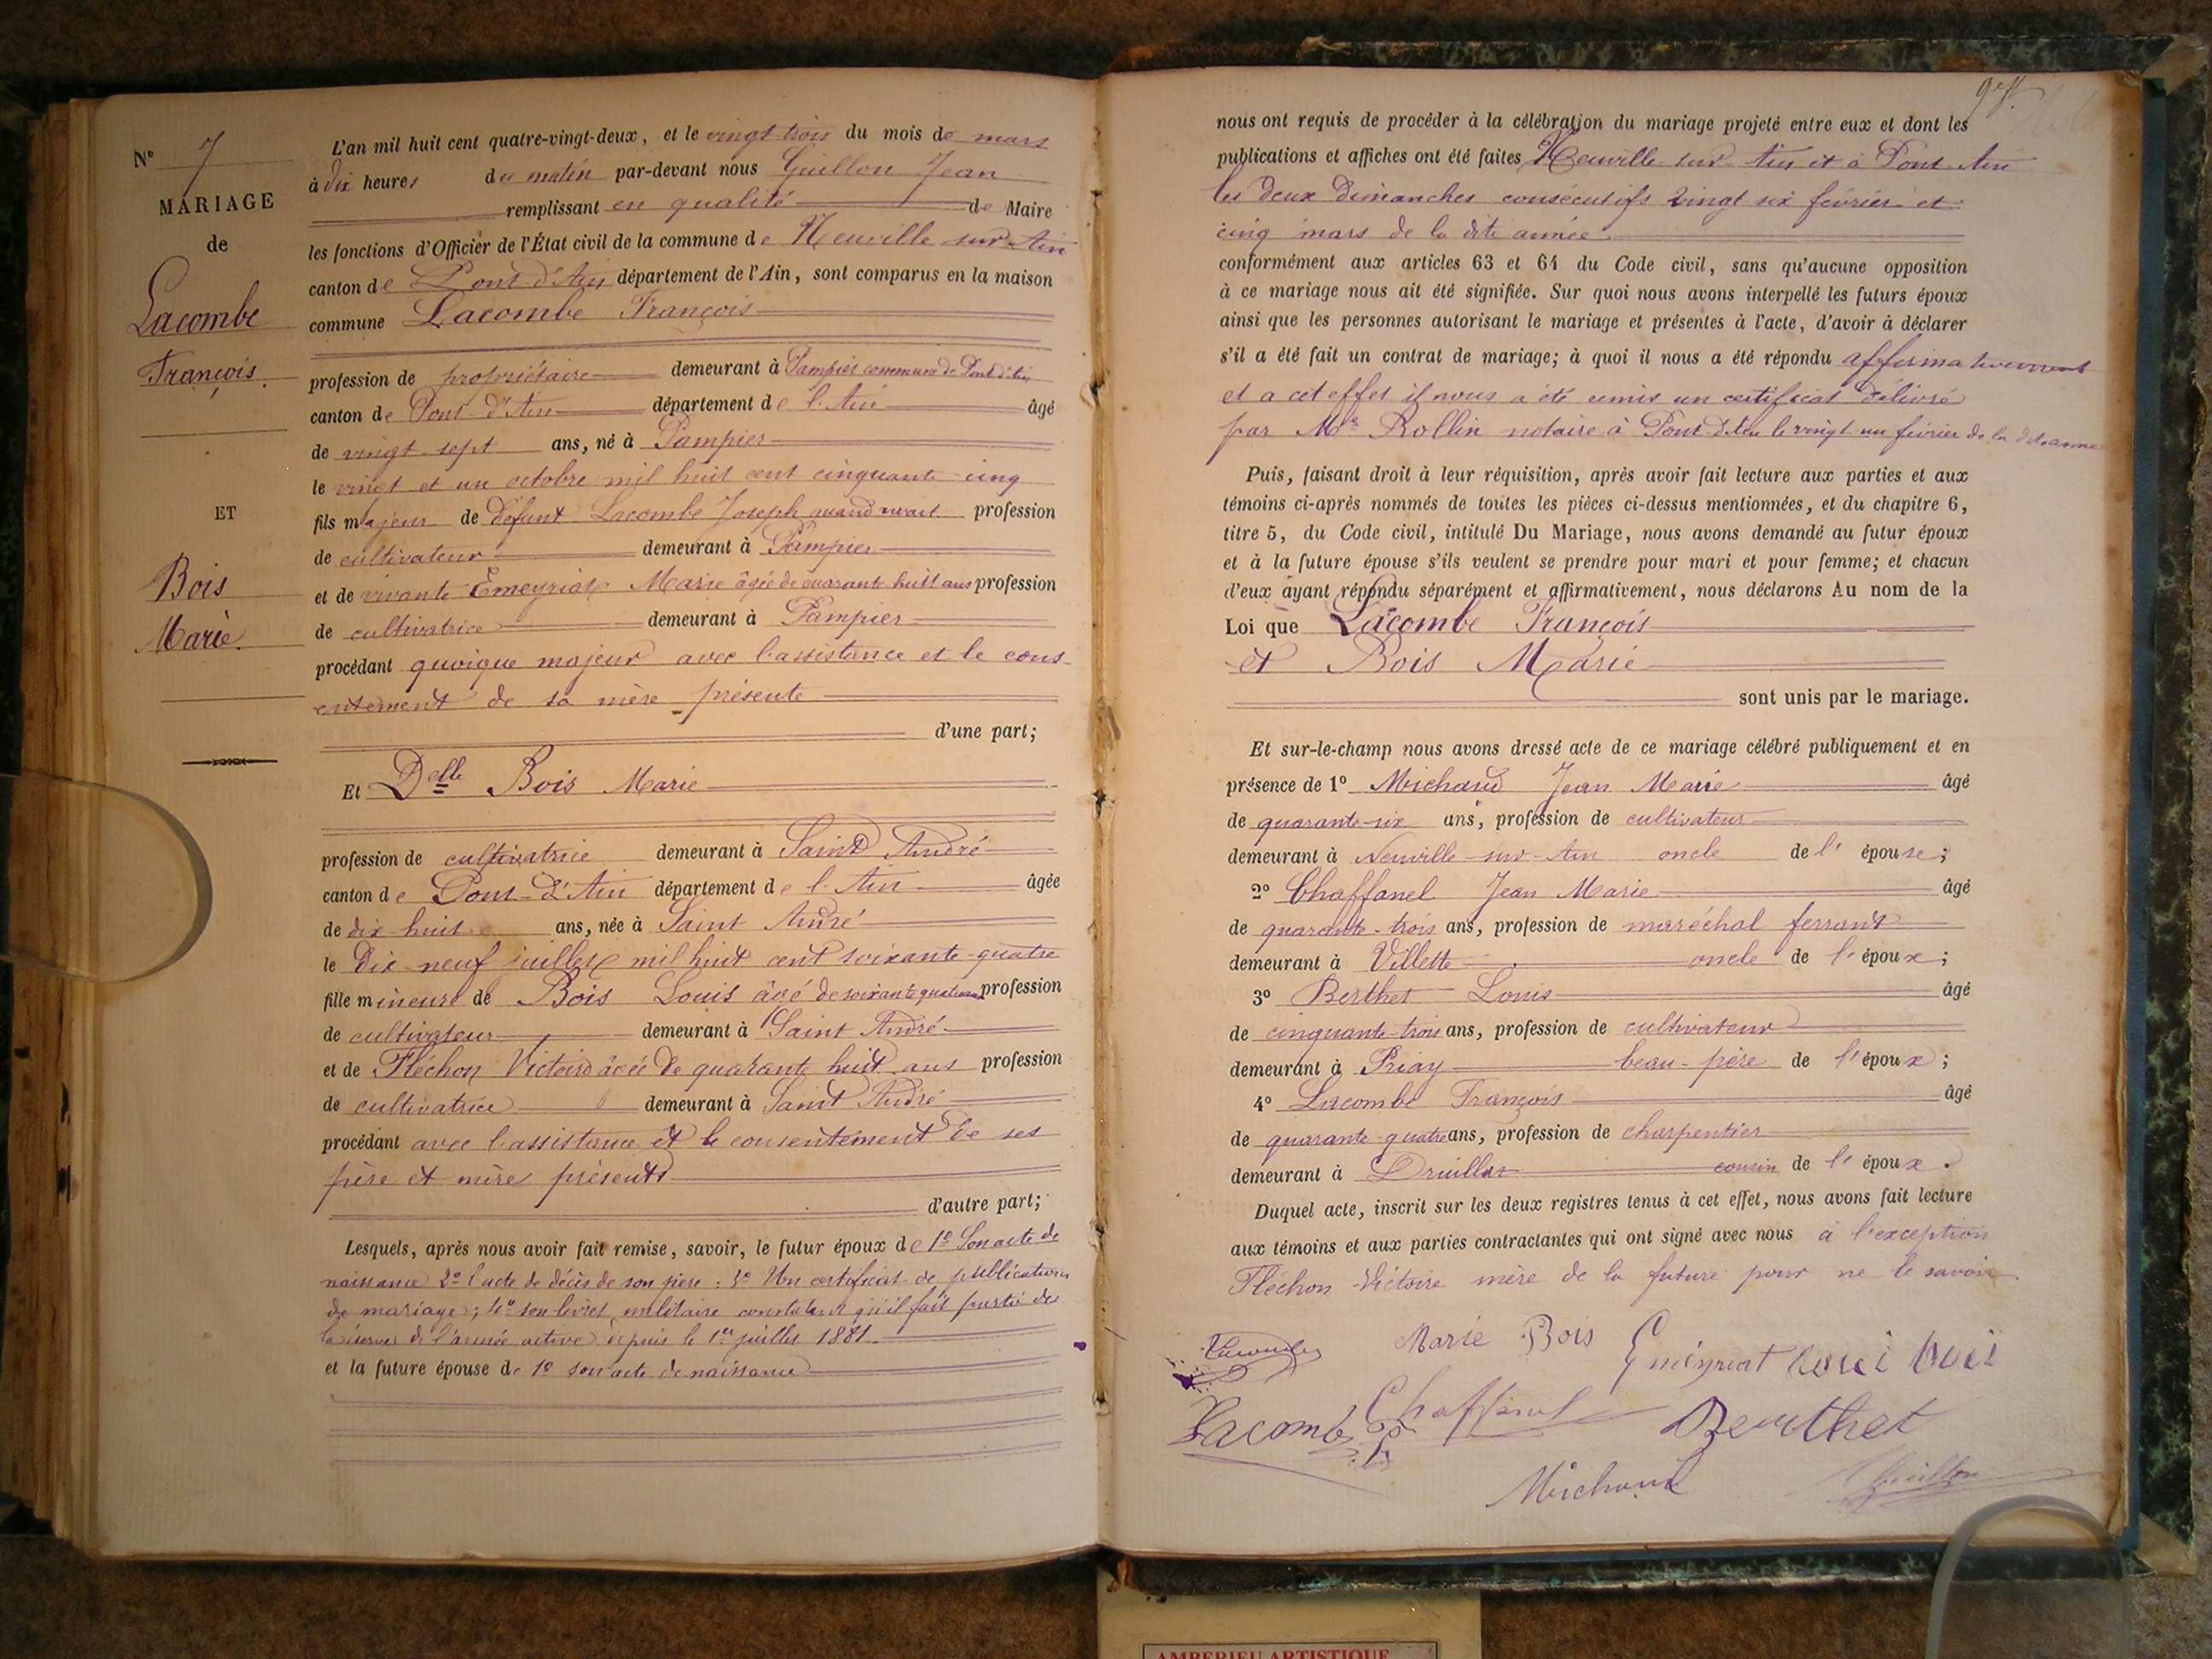 N° 7
MARIAGE
de
Lacombe
François.
ET
Bois
Marie.
L'an mil huit cent quatre-vingt-deux, et le vingt trois du mois de mars
à dix heures du matin par-devant nous Guillon Jean
remplissant en qualité de Maire
les fonctions d'Officier de l'État civil de la commune de Neuville sur Ain
canton de Pont d'Ain département de l'Ain, sont comparus en la maison
commune Lacombe François
profession de propriétaire demeurant à Pampier commune de Pont d'Ain
canton de Pont d'Ain département de l'Ain âgé
de vingt sept ans, né à Pampier
le vingt et un octobre mil huit cent cinquante cinq
fils majeur de défunt Lacombe Joseph quand vivait profession
de cultivateur demeurant à Pampier
et de vivante Emeyriat Marie âgée de quarante huit ans profession
de cultivatrice demeurant à Pampier
procédant quoique majeur avec l'assistance et le cons-
entement de sa mère présente
d'une part;
Et Delle Bois Marie
profession de cultivatrice demeurant à Saint André
canton de Pont-d'Ain département de l'Ain âgée
de dix huit ans, née à Saint André
le dix neuf juillet mil huit cent soixante-quatre
fille mineure de Bois Louis âgé de soixante quatre ans profession
de cultivateur demeurant à Saint André
et de Fléchon Victoire âgée de quarante huit ans profession
de cultivatrice demeurant à Saint André
procédant avec l'assistance et le consentement de ses
père et mère présents
d'autre part;
Lesquels, après nous avoir fait remise, savoir, le futur époux de 1° Son acte de
naissance 2° l'acte de décès de son père : 3° Un certificat de publications
de mariage; 4° son livret militaire constatant qu'il fait partie de
la réserve de l'armée active depuis le 1er juillet 1881.
et la future épouse de 1° son acte de naissance
nous ont requis de procéder à la célébration du mariage projeté entre eux et dont les
publications et affiches ont été faites Neuville sur Ain et à Pont Ain
les deux Dimanches consécutifs vingt six février et
cinq mars de la dite année
conformément aux articles 63 et 64 du Code civil, sans qu'aucune opposition
à ce mariage nous ait été signifiée. Sur quoi nous avons interpellé les futurs époux
ainsi que les personnes autorisant le mariage et présentes à l'acte, d'avoir à déclarer
s'il a été fait un contrat de mariage; à quoi il nous a été répondu affirmativement
et a cet effet il nous a été remis un certificat délivré
par Me Rollin notaire à Pont-d'Ain le vingt un février de la dite anné
Puis, faisant droit à leur réquisition, après avoir fait lecture aux parties et aux
témoins ci-après nommés de toutes les pièces ci-dessus mentionnées, et du chapitre 6,
titre 5, du Code civil, intitulé Du Mariage, nous avons demandé au futur époux
et à la future épouse s'ils veulent se prendre pour mari et pour femme; et chacun
d'eux ayant répondu séparément et affirmativement, nous déclarons Au nom de la
Loi que Lacombe François
et Bois Marie
sont unis par le mariage.
Et sur-le-champ nous avons dressé acte de ce mariage célébré publiquement et en
présence de 1° Michaud Jean Marie âgé
de quarante-six ans, profession de cultivateur
demeurant à Neuville-sur-Ain oncle de l' épouse;
2° Chaffanel Jean Marie âgé
de quarante-trois ans, profession de maréchal ferrant
demeurant à Villette oncle de l'époux;
3° Berthet Louis âgé
de cinquante-trois ans, profession de cultivateur
demeurant à Priay beau-père de l'époux;
4° Lacombe François âgé
de quarante quatre ans, profession de charpentier
demeurant à Druillat cousin de l'époux.
Duquel acte, inscrit sur les deux registres tenus à cet effet, nous avons fait lecture
aux témoins et aux parties contractantes qui ont signé avec nous à l'exception
Fléchon Victoire mère de la future pour ne le savoir
Lacombe Marie Bois Emeyriat
Lacombe Chaffanel Berthet
Michaud Guillon
AMBERIEU ARTISTIQUE